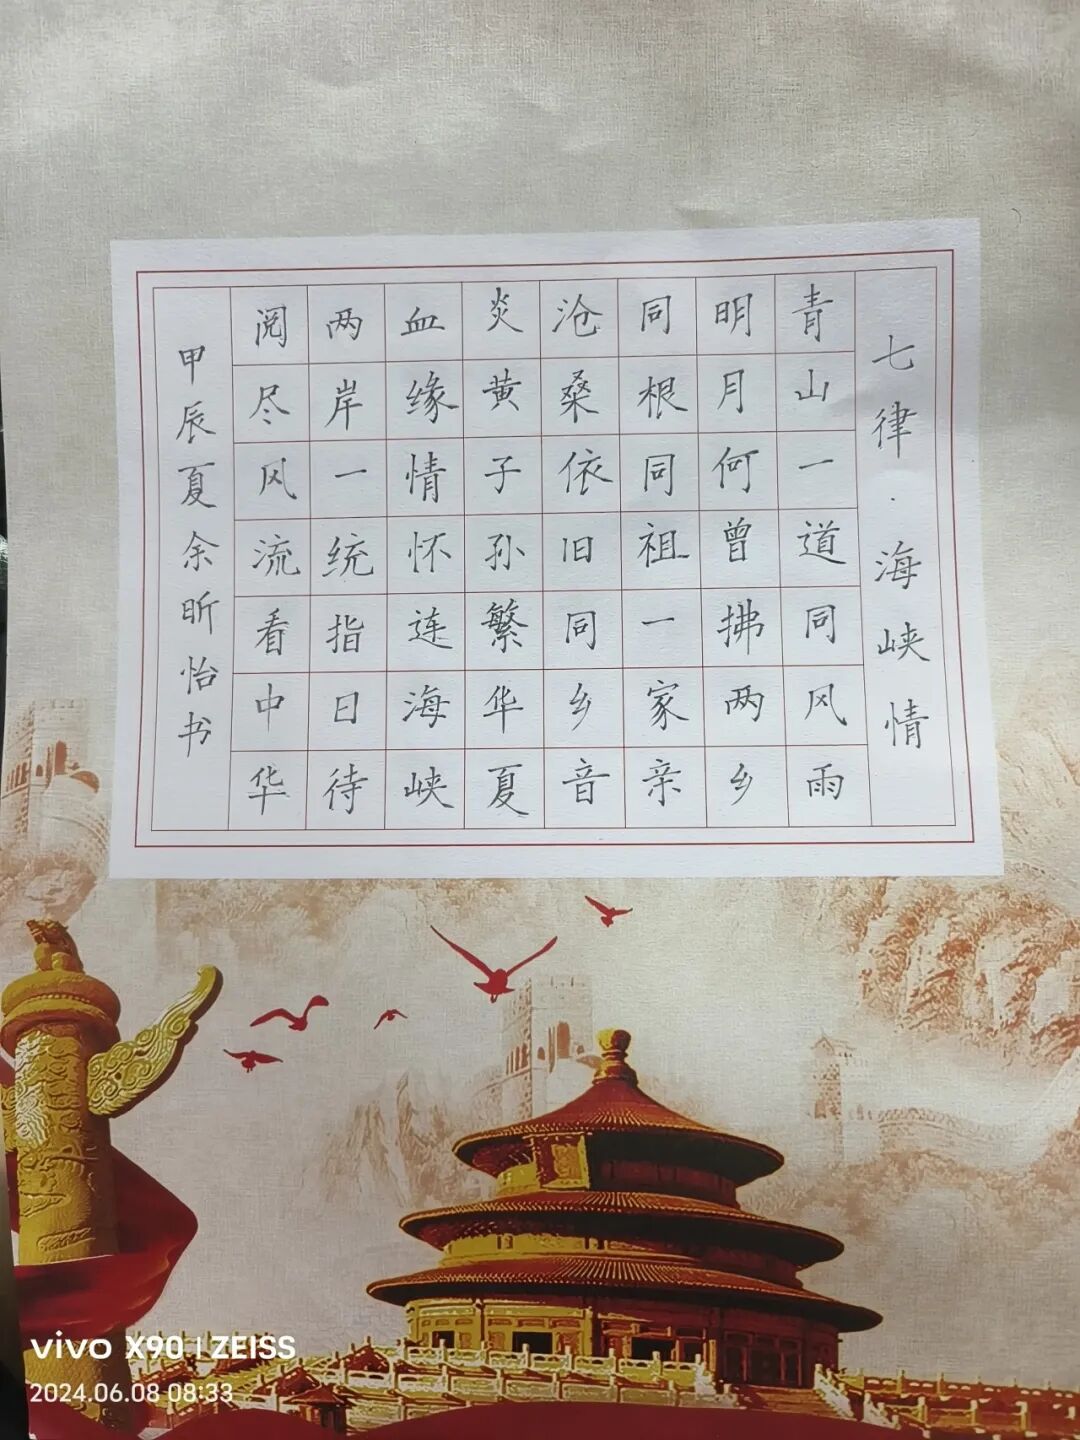 七律·海峡情
青山一道同风雨
明月何曾拂两乡
同根同祖一家亲
沧桑依旧同乡音
炎黄子孙繁华夏
血缘情怀连海峡
两岸一统指日待
阅尽风流看中华
甲辰夏余昕怡书
vivo X90 | ZEISS
2024.06.08 08:33